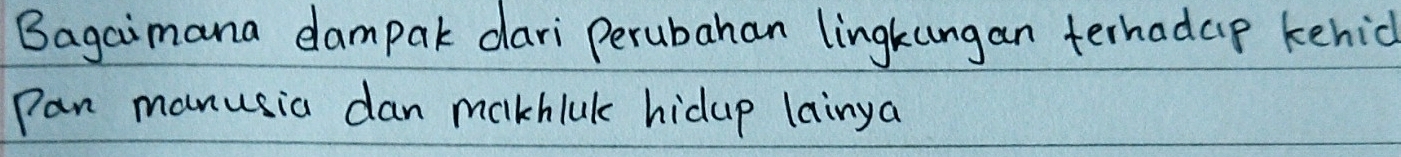 Bagaimana dampak dari perubahan lingkungan terhadap kehid
pan manusia dan makhluk hidup lainya